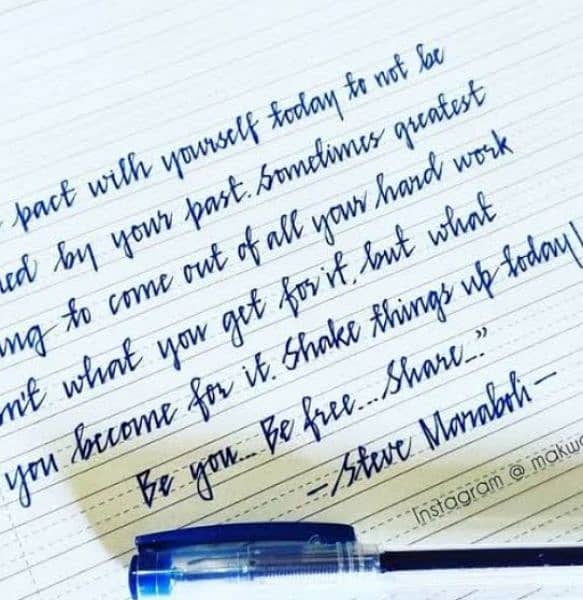 pact with yourself today to not be
by your past. Sometimes greatest
to come out of all your hard work
what you get for it, but what
you become for it. Shake things up today!
Be you... Be free... Share..."
- Steve Maraboli -
Instagram @